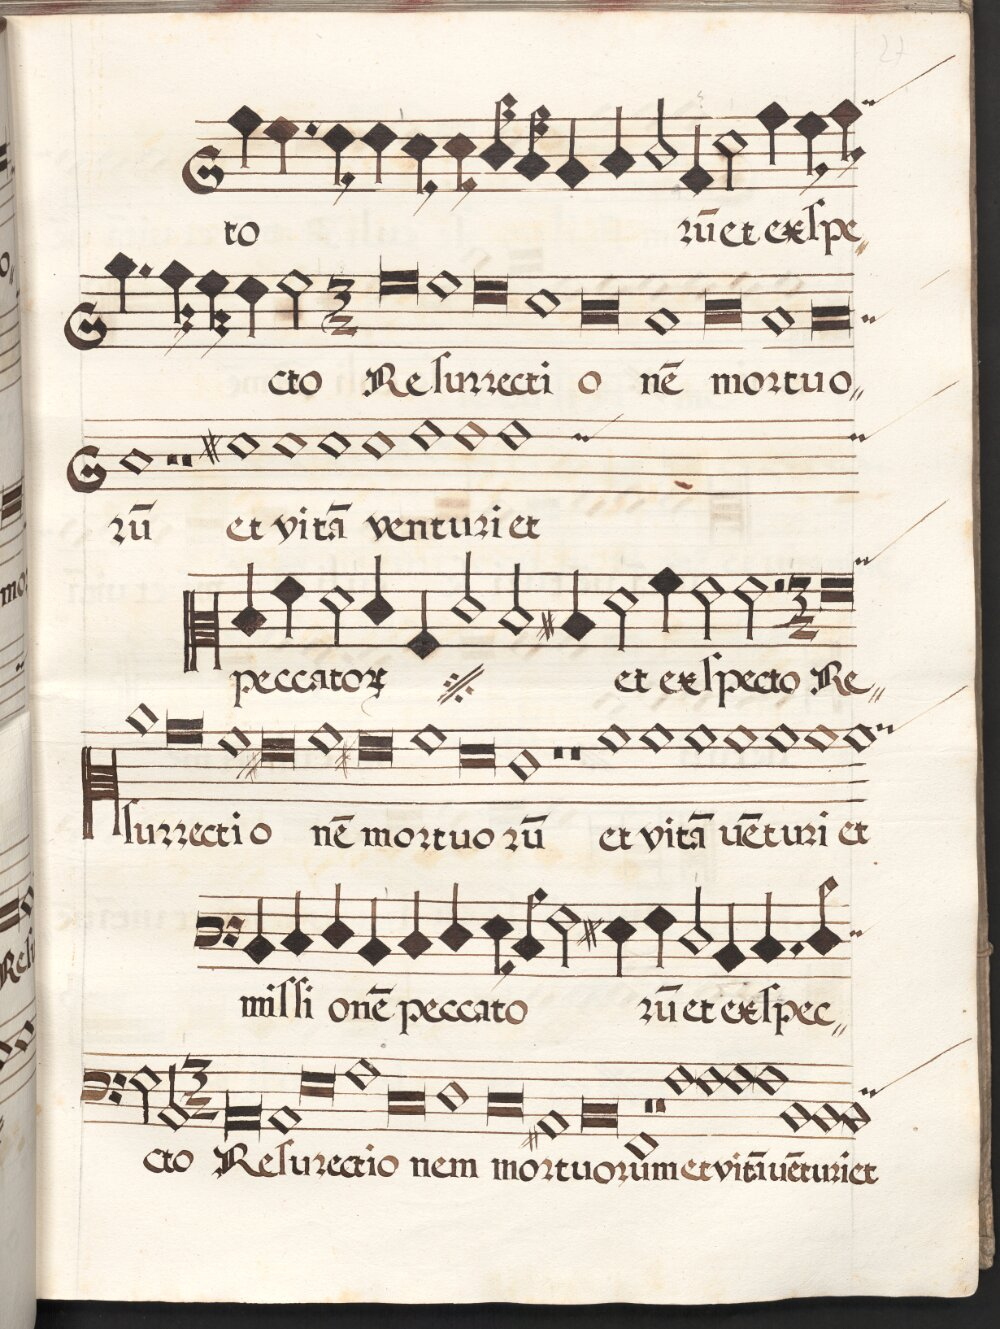 27
to rūet exspe
3
2
cto Resurrecti o nē mortuo
rū et vitā venturi et
3
2
peccatorꝝ et exspecto Re
surrectio nē mortuo rū et vitā uēturi et
missi onē peccato rū et exspec
3
2
cto Resurectio nem mortuorūm et vitā uēturi et